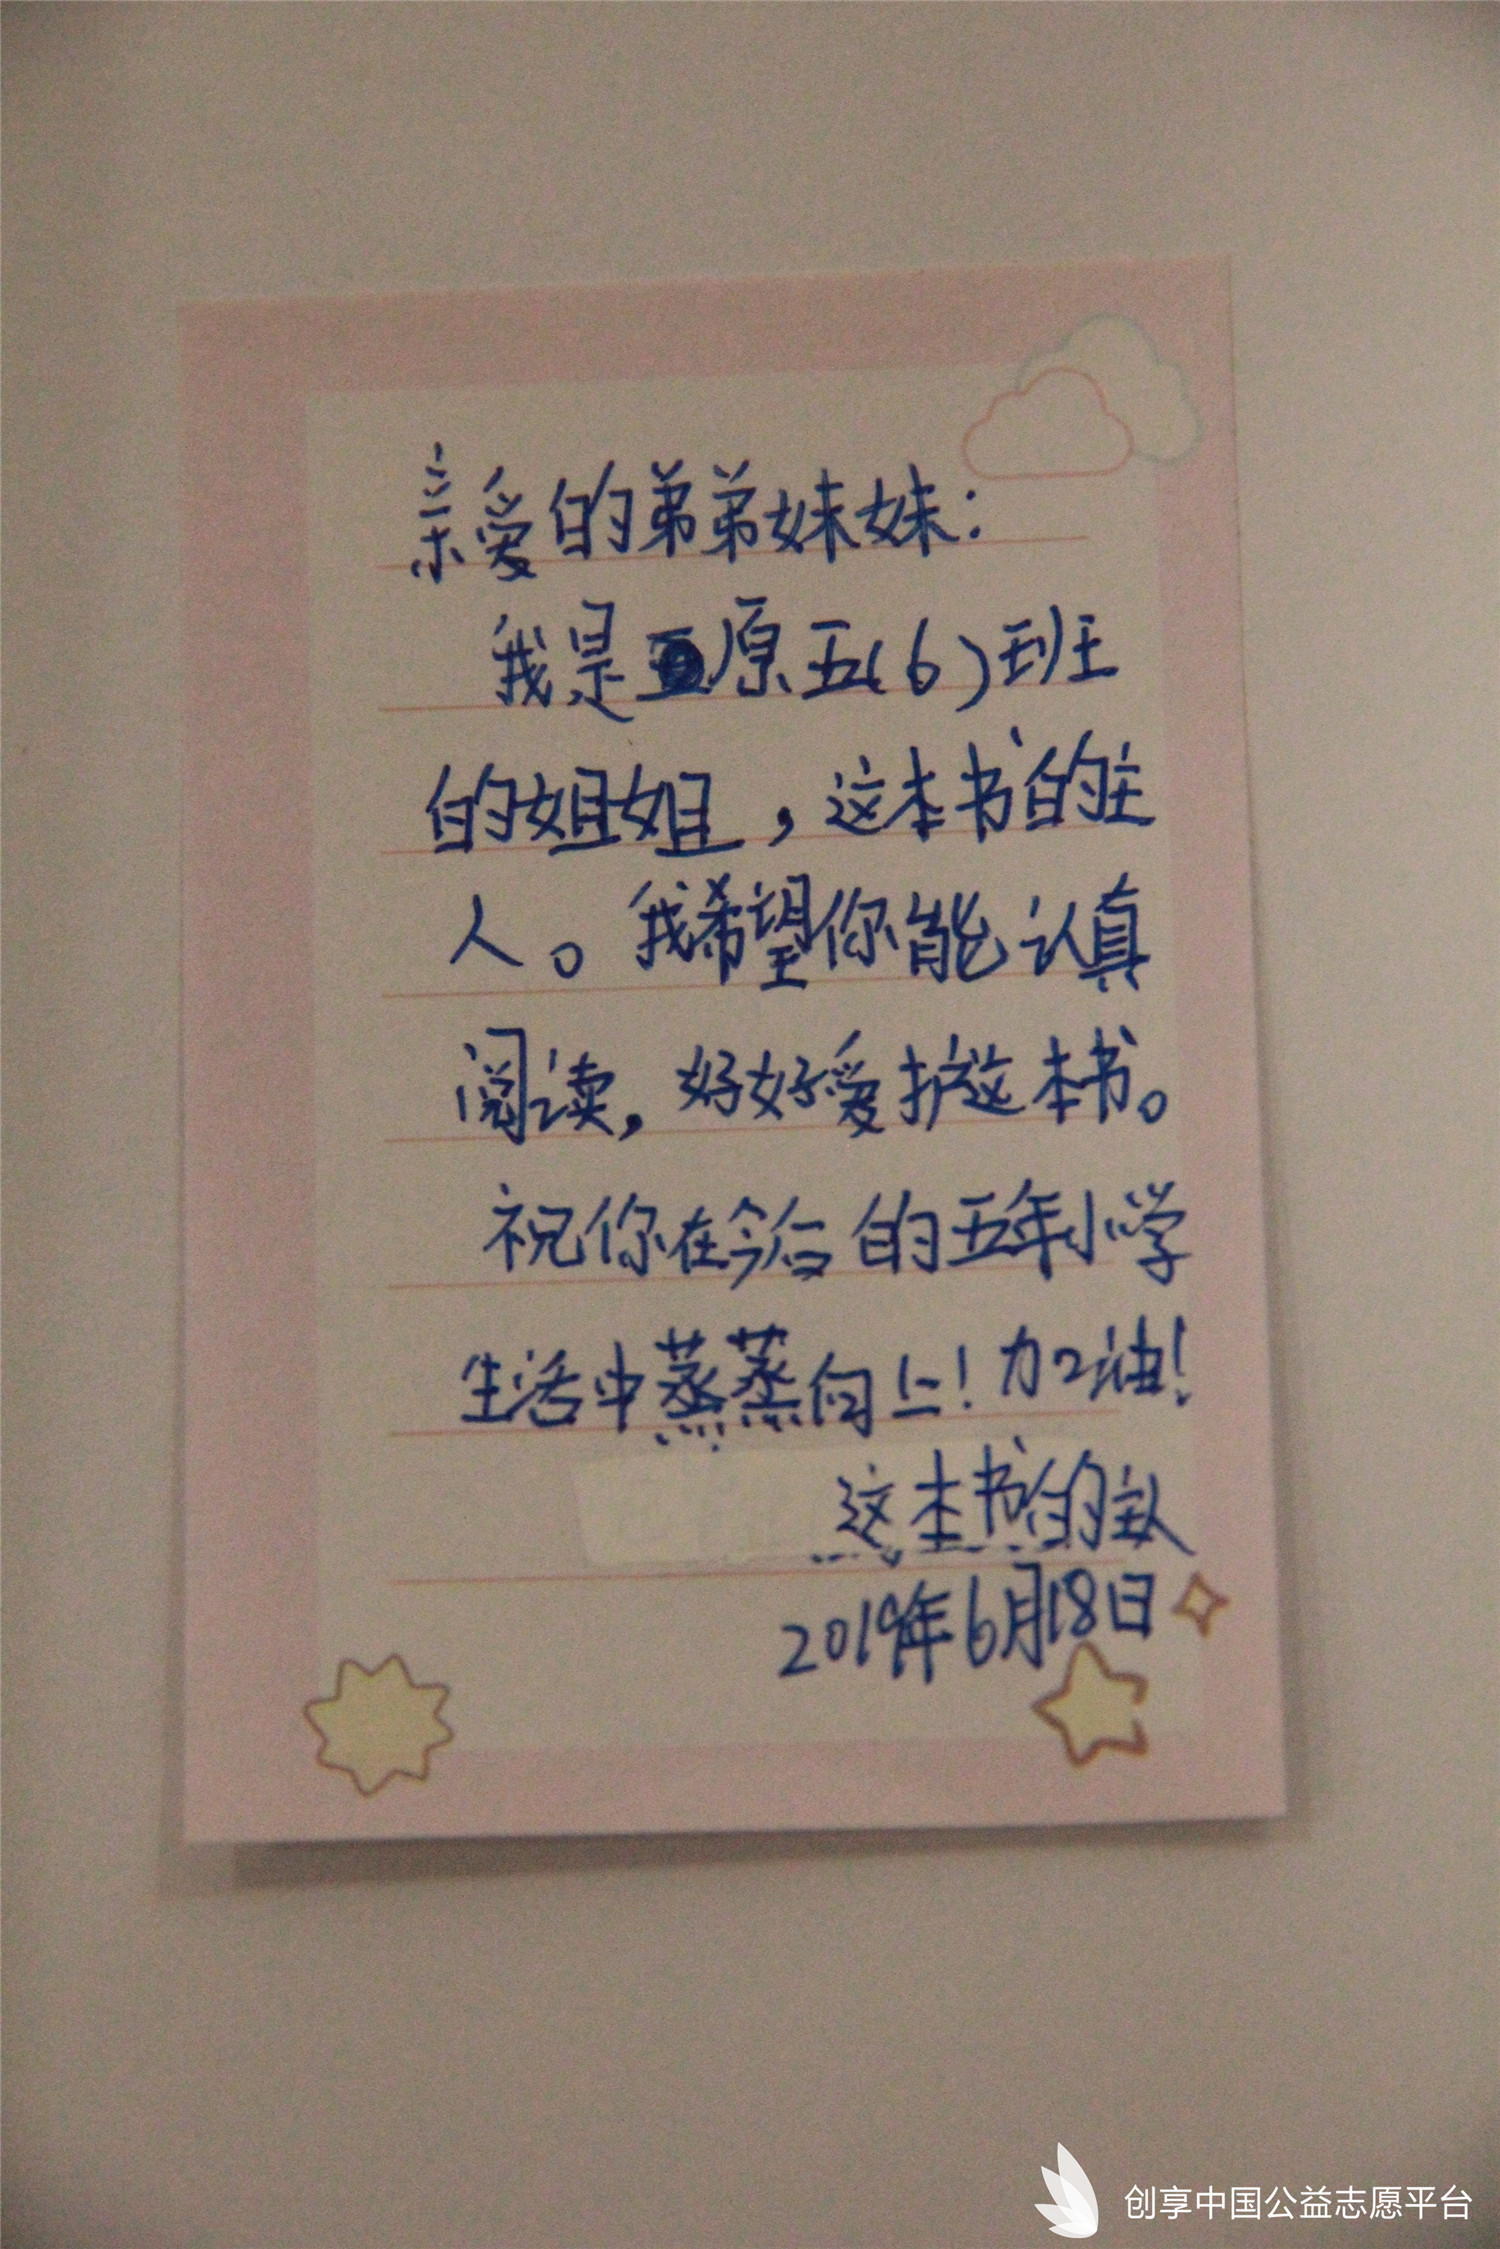 亲爱的弟弟妹妹：
我是原五(6)班
的姐姐，这本书的主
人。我希望你能认真
阅读，好好爱护这本书。
祝你在今后的五年小学
生活中蒸蒸向上！加油！
这本书的主人
2019年6月18日
创享中国公益志愿平台